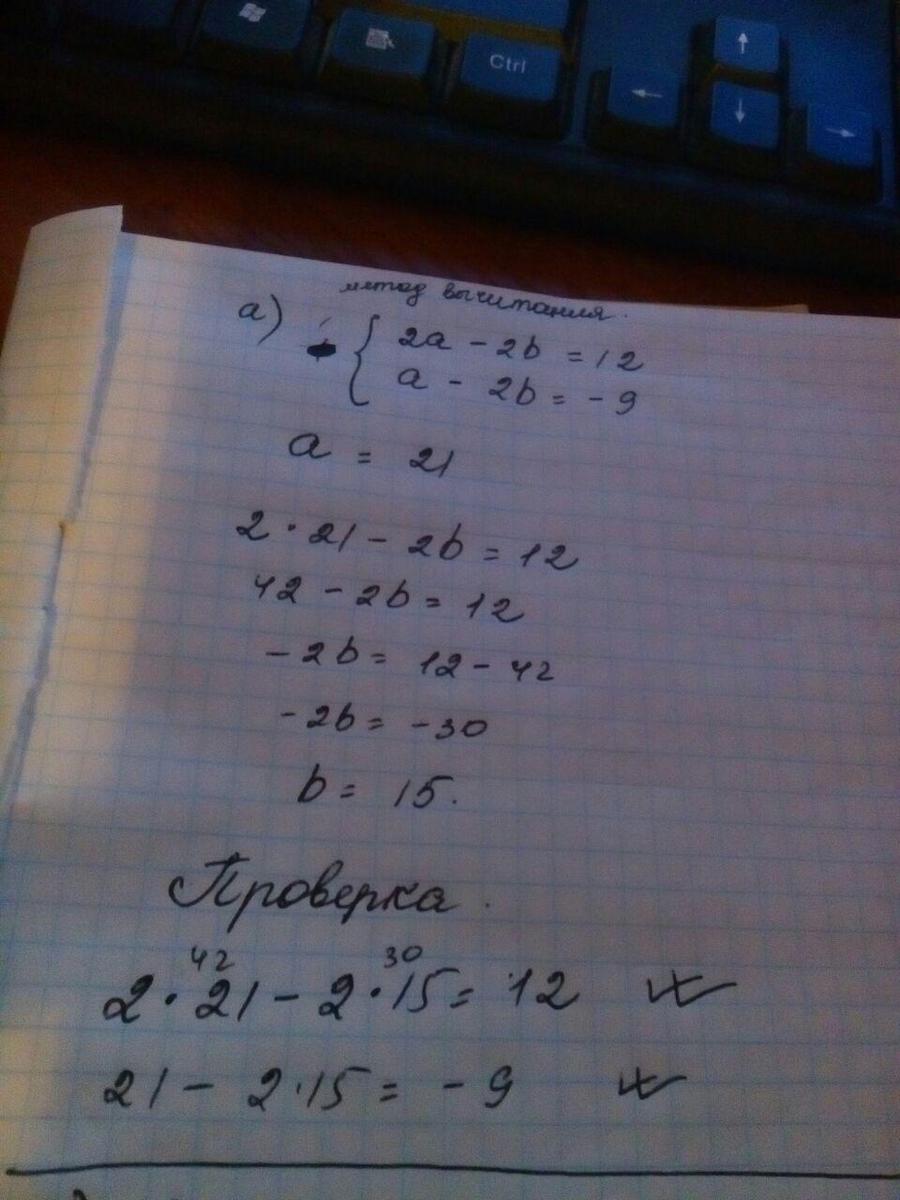 Ctrl
← ↑ ↓ →
метод вычитания.
a) { 2a - 2b = 12
a - 2b = - 9
a = 21
2 · 21 - 2b = 12
42 - 2b = 12
- 2b = 12 - 42
- 2b = - 30
b = 15.
Проверка.
42 30
2 · 21 - 2 · 15 = 12
21 - 2 · 15 = - 9